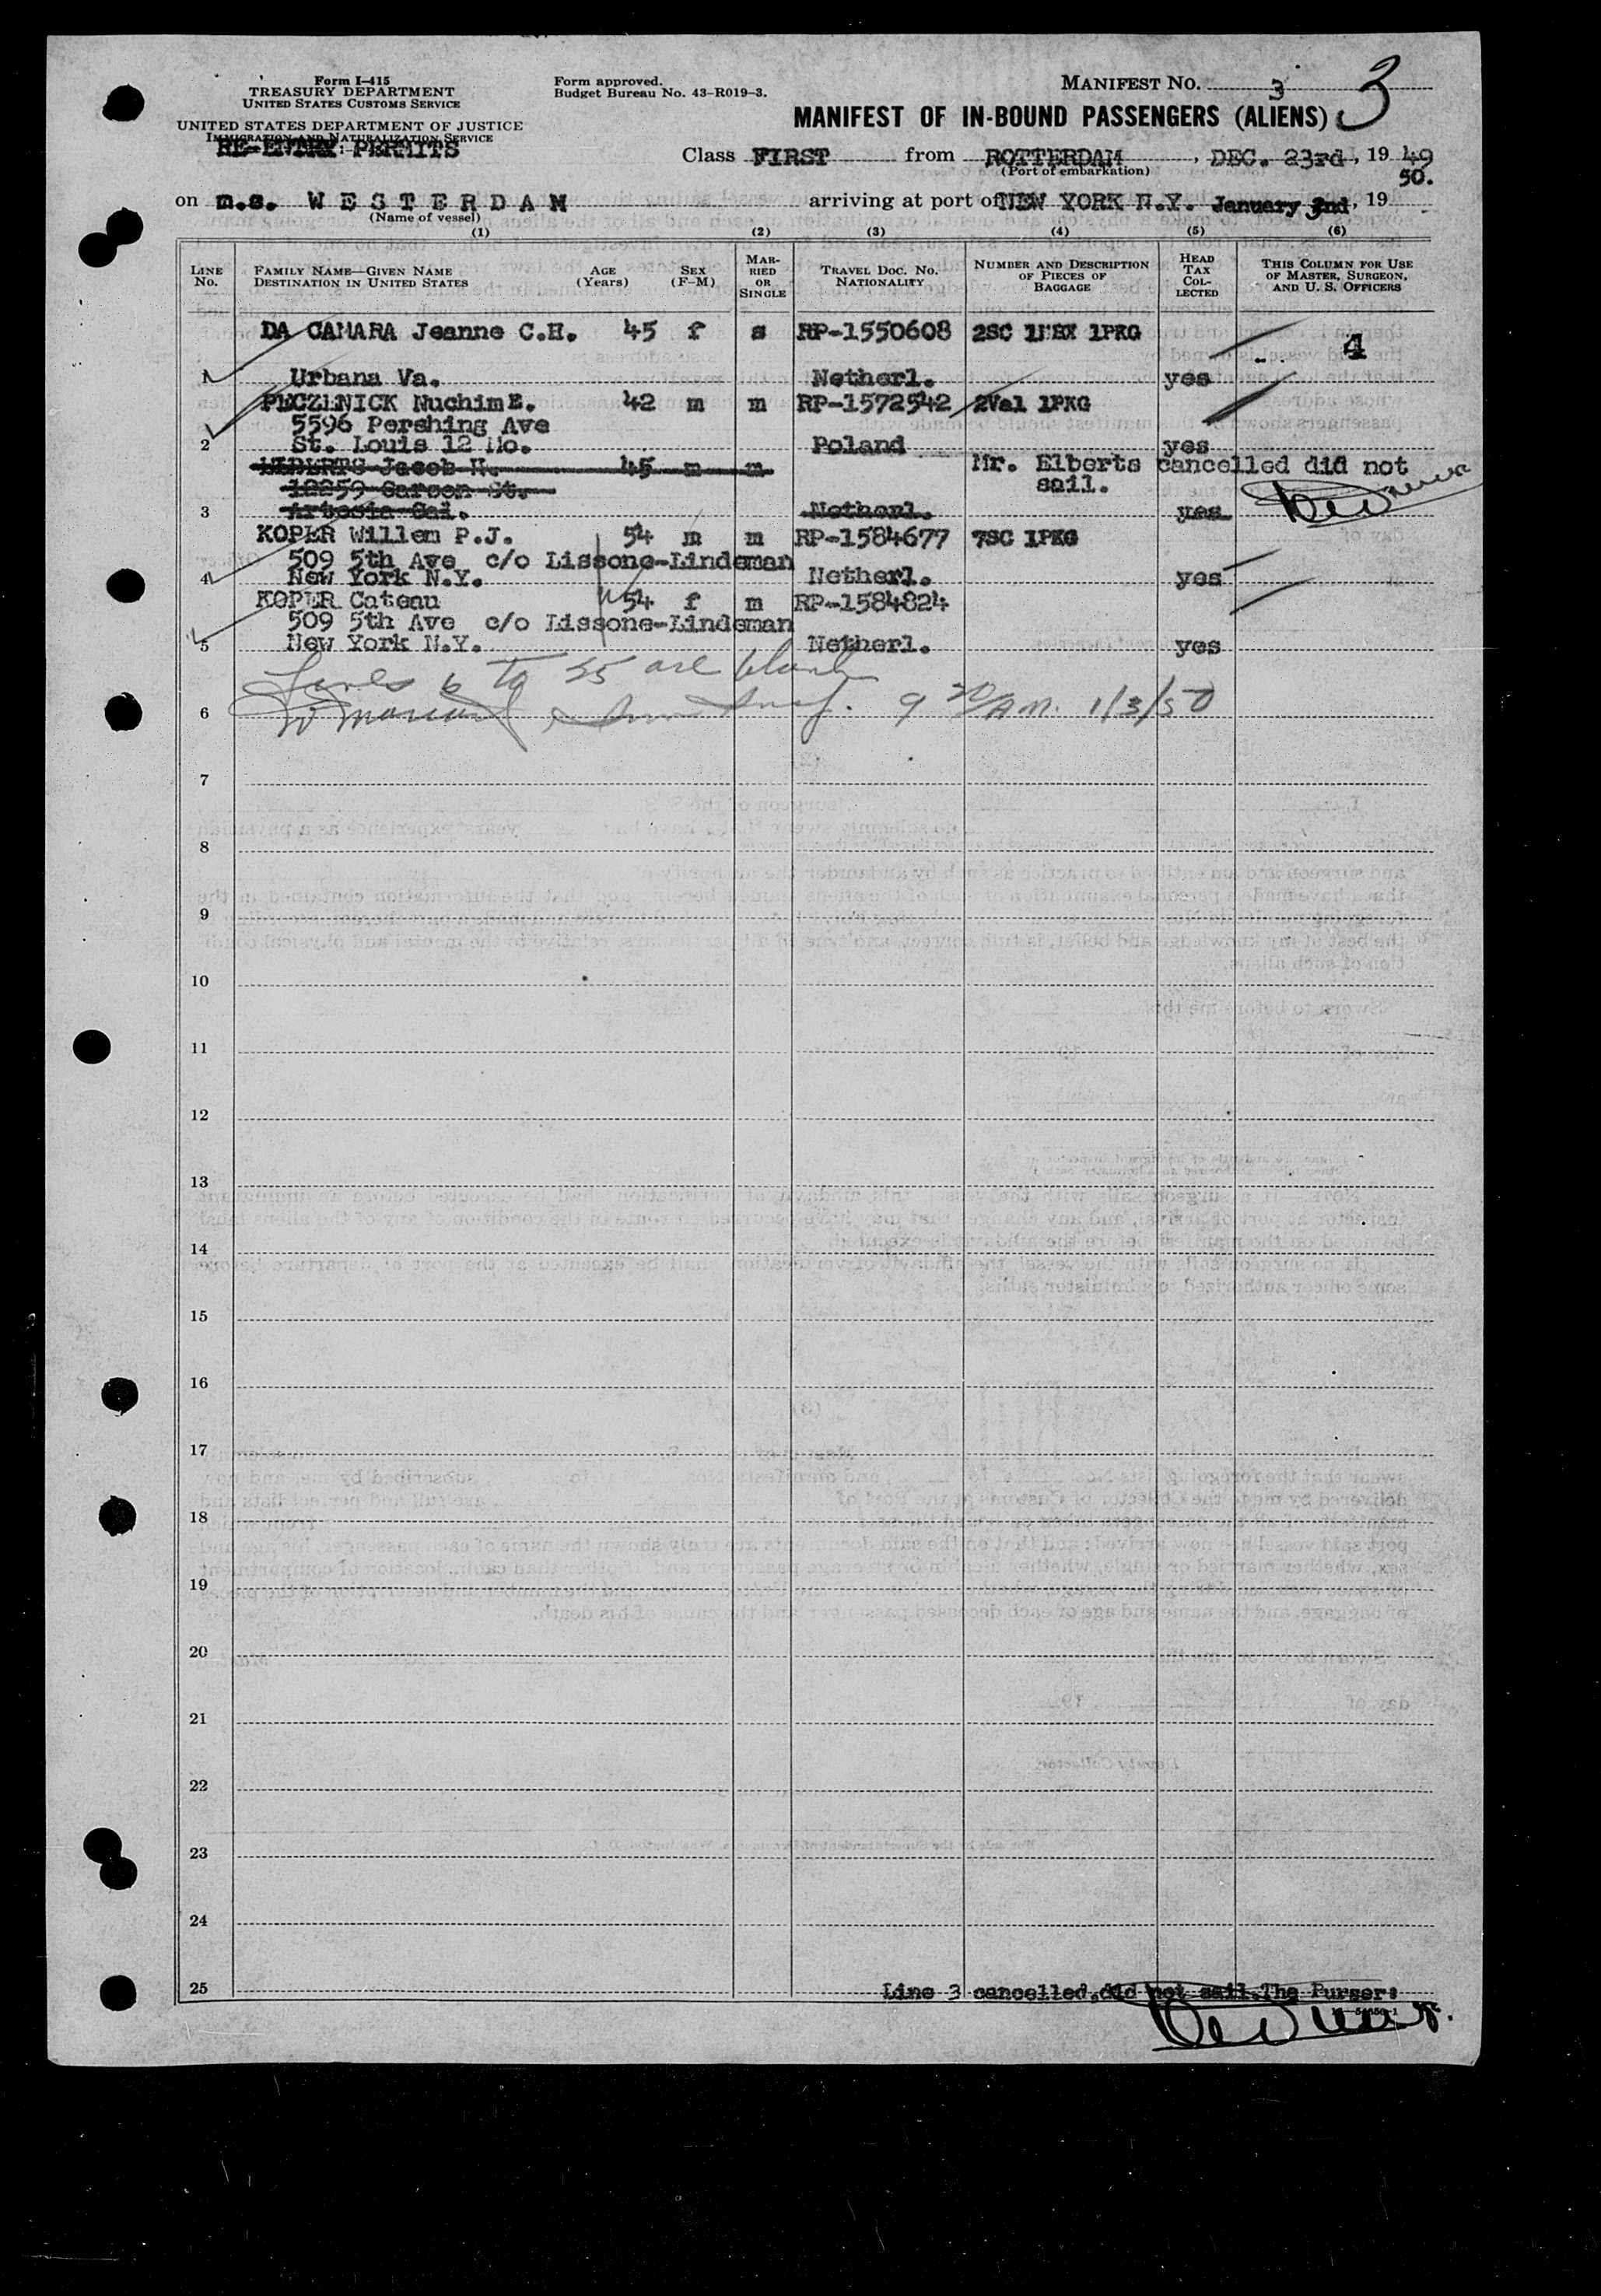 Form I-415
TREASURY DEPARTMENT
UNITED STATES CUSTOMS SERVICE
UNITED STATES DEPARTMENT OF JUSTICE
IMMIGRATION AND NATURALIZATION SERVICE
RE-ENTRY: PERMITS
Form approved.
Budget Bureau No. 43-R019-3.
MANIFEST NO. 3
3
MANIFEST OF IN-BOUND PASSENGERS (ALIENS)
Class FIRST from ROTTERDAM, DEC. 23rd, 19 49
(Port of embarkation)
50.
on m.s. WESTERDAM arriving at port of NEW YORK N.Y. January 3nd, 19
(Name of vessel)
(1) (2) (3) (4) (5) (6)
LINE No. FAMILY NAME—GIVEN NAME DESTINATION IN UNITED STATES AGE (Years) SEX (F-M) MARRIED OR SINGLE TRAVEL DOC. NO. NATIONALITY NUMBER AND DESCRIPTION OF PIECES OF BAGGAGE HEAD TAX COLLECTED THIS COLUMN FOR USE OF MASTER, SURGEON, AND U. S. OFFICERS
DA CAMARA Jeanne C.H. 45 f s RP-1550608 2SC 1PKG
4
1 Urbana Va. Netherl. yes
PECZENICK Nuchim E. 42 m m RP-1572542 2Val 1PKG
5596 Pershing Ave
2 St. Louis 12 Mo. Poland yes
ELBERTS Jacob H. 45 m m Mr. Elberts cancelled did not
12259 Carson St. sail.
3 Artesia Cal. Netherl. yes
KOPER Willem P.J. 54 m m RP-1584677 7SC 1PKG
509 5th Ave c/o Lissone-Lindeman
4 New York N.Y. Netherl. yes
KOPER Cateau 54 f m RP-1584824
509 5th Ave c/o Lissone-Lindeman
5 New York N.Y. Netherl. yes
Lines 6 to 25 are blank
6 9 30 AM. 1/3/50
7
8
9
10
11
12
13
14
15
16
17
18
19
20
21
22
23
24
25 Line 3 cancelled, did not sail. The Purser: